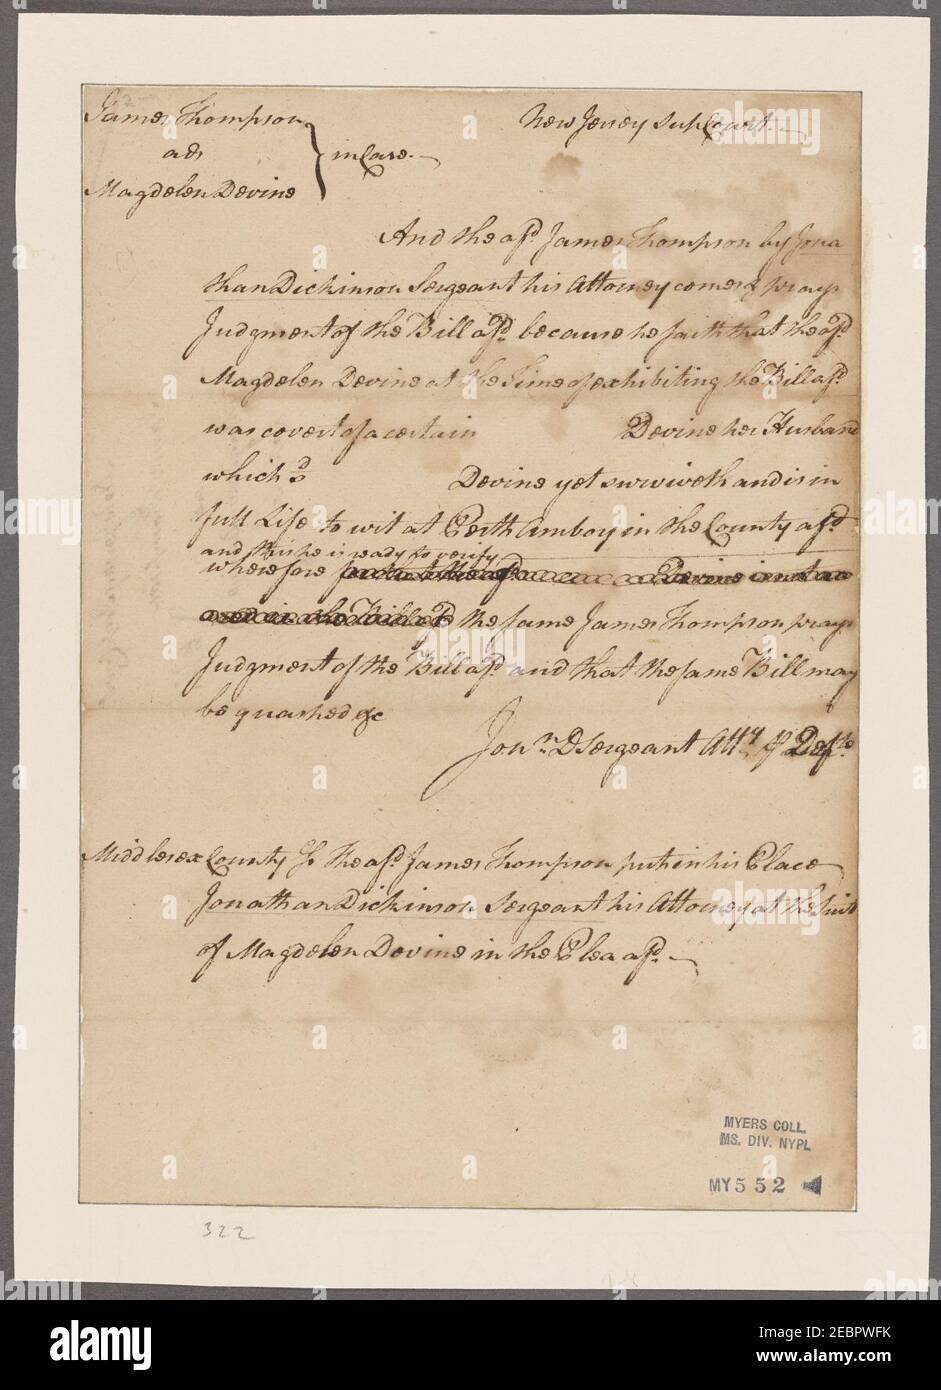 James Thompson
ads
Magdelen Devine
in Case.
New Jersey Sup Court.
And the afd. James Thompson by Jona
than Dickinson Sergeant his Attorney comes & prays
Judgment of the Bill afd. because he saith that the afd.
Magdelen Devine at the Time of exhibiting the Bill afd.
was covert of a certain Devine her Husband
which sd. Devine yet surviveth and is in
full Life to wit at Perth Amboy in the County afd.
and this he is ready to verify
wherefore
the same James Thompson prays
Judgment of the Bill afd. and that the same Bill may
be quashed &c
Jonn. D Sergeant Atty. p Defte.
Middlesex County Ss The afd. James Thompson puts in his Place
Jonathan Dickinson Sergeant his Attorney at the Suit
of Magdelen Devine in the Plea afd.
MYERS COLL.
MS. DIV. NYPL
MY 552
322
alamy
Image ID: 2EBPWFK
www.alamy.com